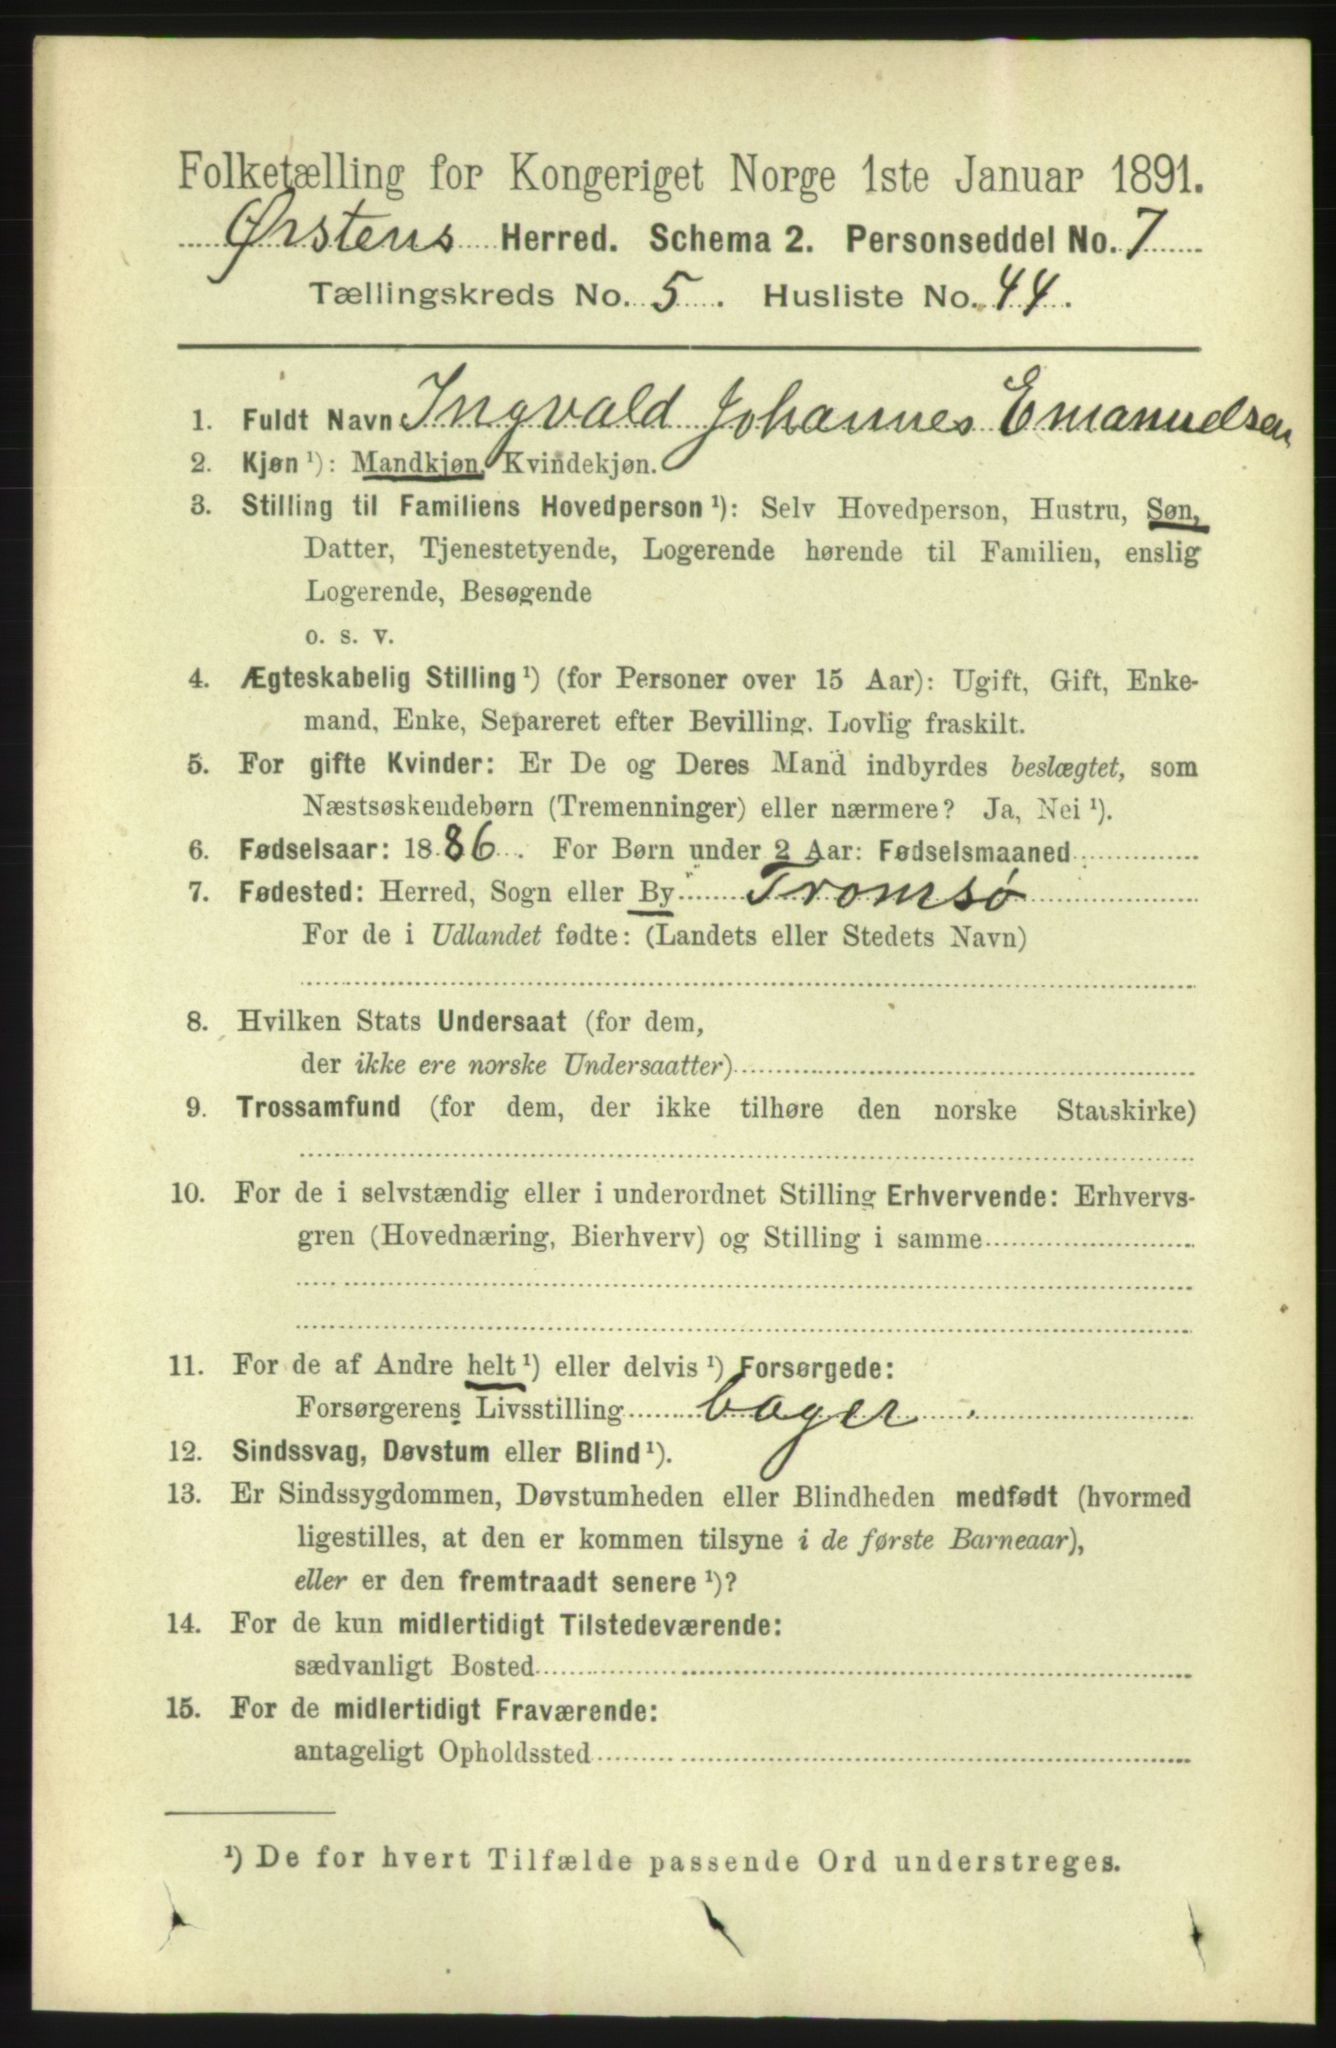 Folketælling for Kongeriget Norge 1ste Januar 1891.
Ørstens Herred. Schema 2. Personseddel No. 7
Tællingskreds No. 5. Husliste No. 44.
1. Fuldt Navn Ingvald Johannes Emanuelsen
2. Kjøn ¹): Mandkjøn, Kvindekjøn.
3. Stilling til Familiens Hovedperson ¹): Selv Hovedperson, Hustru, Søn,
Datter, Tjenestetyende, Logerende hørende til Familien, enslig
Logerende, Besøgende
o. s. v.
4. Ægteskabelig Stilling ¹) (for Personer over 15 Aar): Ugift, Gift, Enke-
mand, Enke, Separeret efter Bevilling. Lovlig fraskilt.
5. For gifte Kvinder: Er De og Deres Mand indbyrdes beslægtet, som
Næstsøskendebørn (Tremenninger) eller nærmere? Ja, Nei ¹).
6. Fødselsaar: 1886. For Børn under 2 Aar: Fødselsmaaned
7. Fødested: Herred, Sogn eller By Tromsø
For de i Udlandet fødte: (Landets eller Stedets Navn)
8. Hvilken Stats Undersaat (for dem,
der ikke ere norske Undersaatter)
9. Trossamfund (for dem, der ikke tilhøre den norske Statskirke)
10. For de i selvstændig eller i underordnet Stilling Erhvervende: Erhvervs-
gren (Hovednæring, Bierhverv) og Stilling i samme
11. For de af Andre helt ¹) eller delvis ¹) Forsørgede:
Forsørgerens Livsstilling bager
12. Sindssvag, Døvstum eller Blind ¹).
13. Er Sindssygdommen, Døvstumheden eller Blindheden medfødt (hvormed
ligestilles, at den er kommen tilsyne i de første Barneaar),
eller er den fremtraadt senere ¹)?
14. For de kun midlertidigt Tilstedeværende:
sædvanligt Bosted
15. For de midlertidigt Fraværende:
antageligt Opholdssted
¹) De for hvert Tilfælde passende Ord understreges.